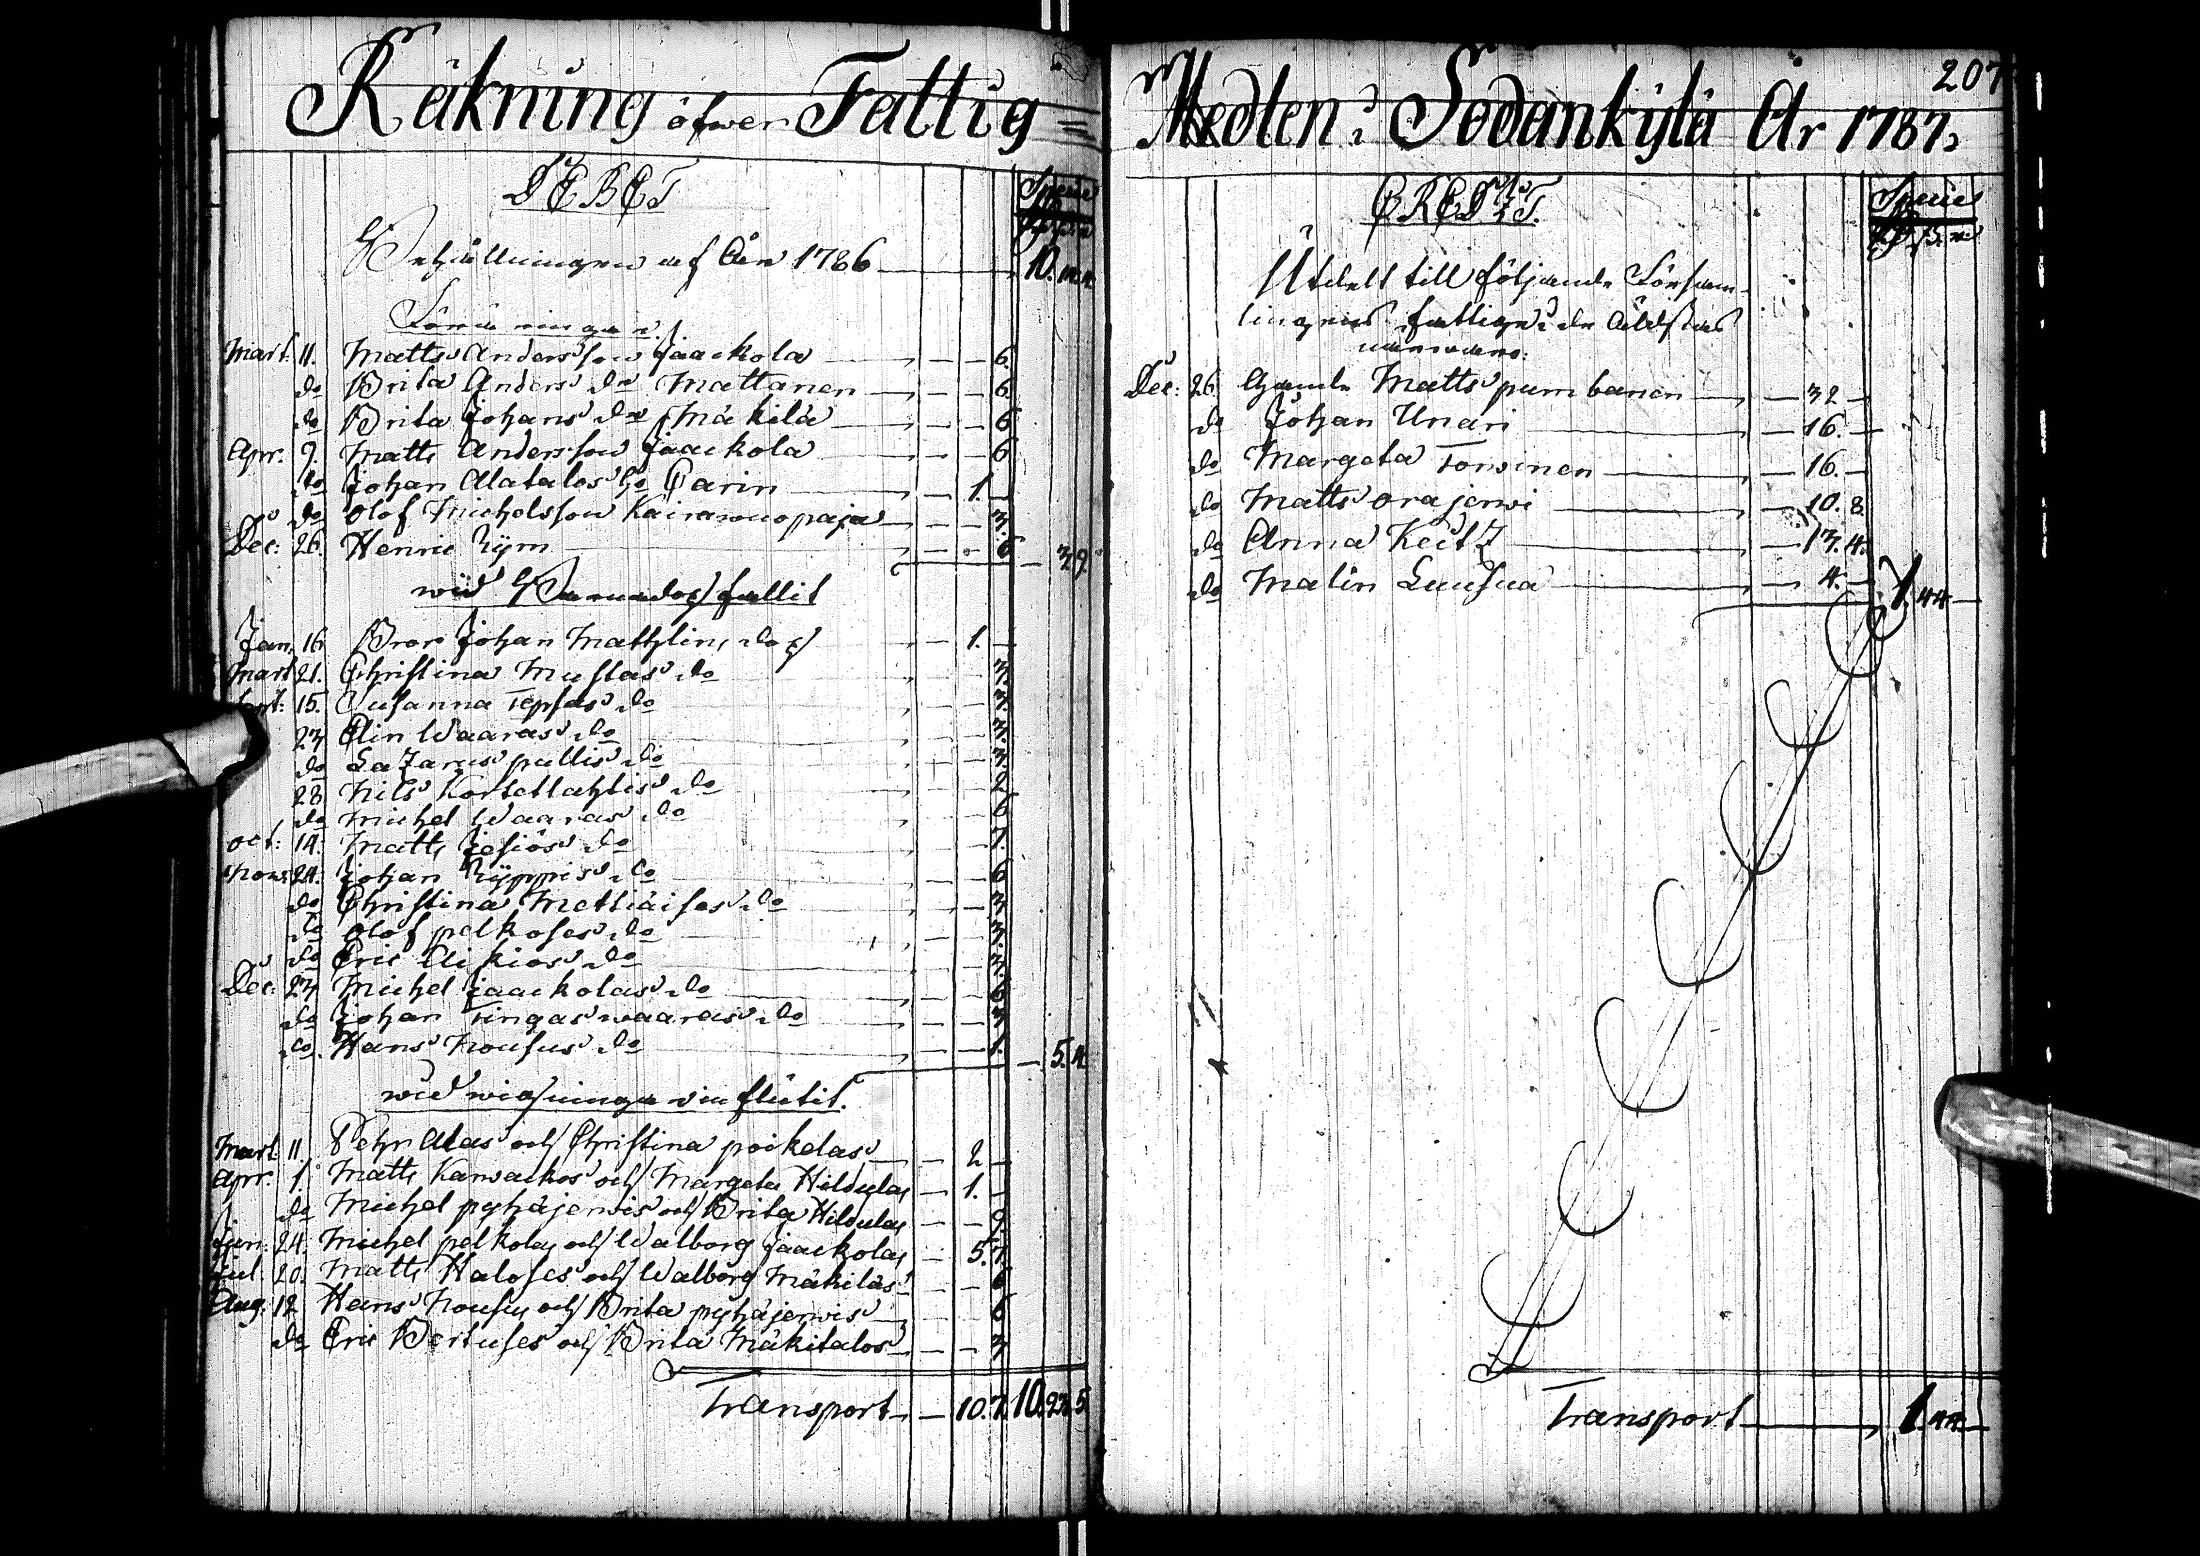 Räkning öfwer Fattig =
DEBET
Specie
Behållningen af Åhr 1786 10.
Mart. 11. Matts Andersson Jaackola 6.
do Brita Anders dr Mattanen 6.
do Brita Johans dr Mäkilä 6
Apr. 9. Matts Andersson Jaackola 6
do Johan Alatalos ho Carin 1.
do Olof Michelsson Kairawuopaja 3.
Dec: 26. Henric Kyrö 6 39
wid Barnadop fallit
Jan. 16 Bror Johan Mathlins dop 1.
Mart 21. Christina Mustas do 3.
Sept: 15. Susanna Tepsas do 3.
23 Elin Waaras do 3.
do Lazarus pullis do 3.
28 Nils Kortetlahtis do 2
do Michel Waaras do 6
Oct: 14. Matts Jesiös do 7.
Now: 24. Johan Kyppis do 6
do Christina Mettiäises do 3
do Olof pelkoses do 3.
do Eric Aikios do 3.
Dec: 23 Michel Jaackolas do 6
do Johan Tingaswaaras do 3
do. Hans Kousus do 1. 5.4
wid wigningar influtit.
Mart. 11 Pehr Alas och Christina poikelas 2
Apr. 1. Matts Karwackos och Margeta Hildulas 1.
do Michel pyhäjerwis och Brita Hildulas 9.
Jun: 24. Michel pelkolas och Walborg Jaackolas 5.7.
Jul. 20. Matts Haloses och Walborg Mäkiläs 6
Aug: 12 Hans Kousus och Brita pyhäjerwis 6
do Eric Bertuses och Brita Mäkitalos 3
Transport 10.7. 10.23.5
207
Medlen i Sodankylä År 1787.
CREDIT.
Specie
Utdelt till följande Församlingens
fattige i de Äldstas
närwaro.
Dec: 26. Gamle Matts pumbanen 32
do Johan Unari 16.
do Margeta Torvinen 16.
do Matts Orajerwi 10.8.
do Anna Keitz 13.4.
do Malin Luusua 4. 1.44
Transport 1.44